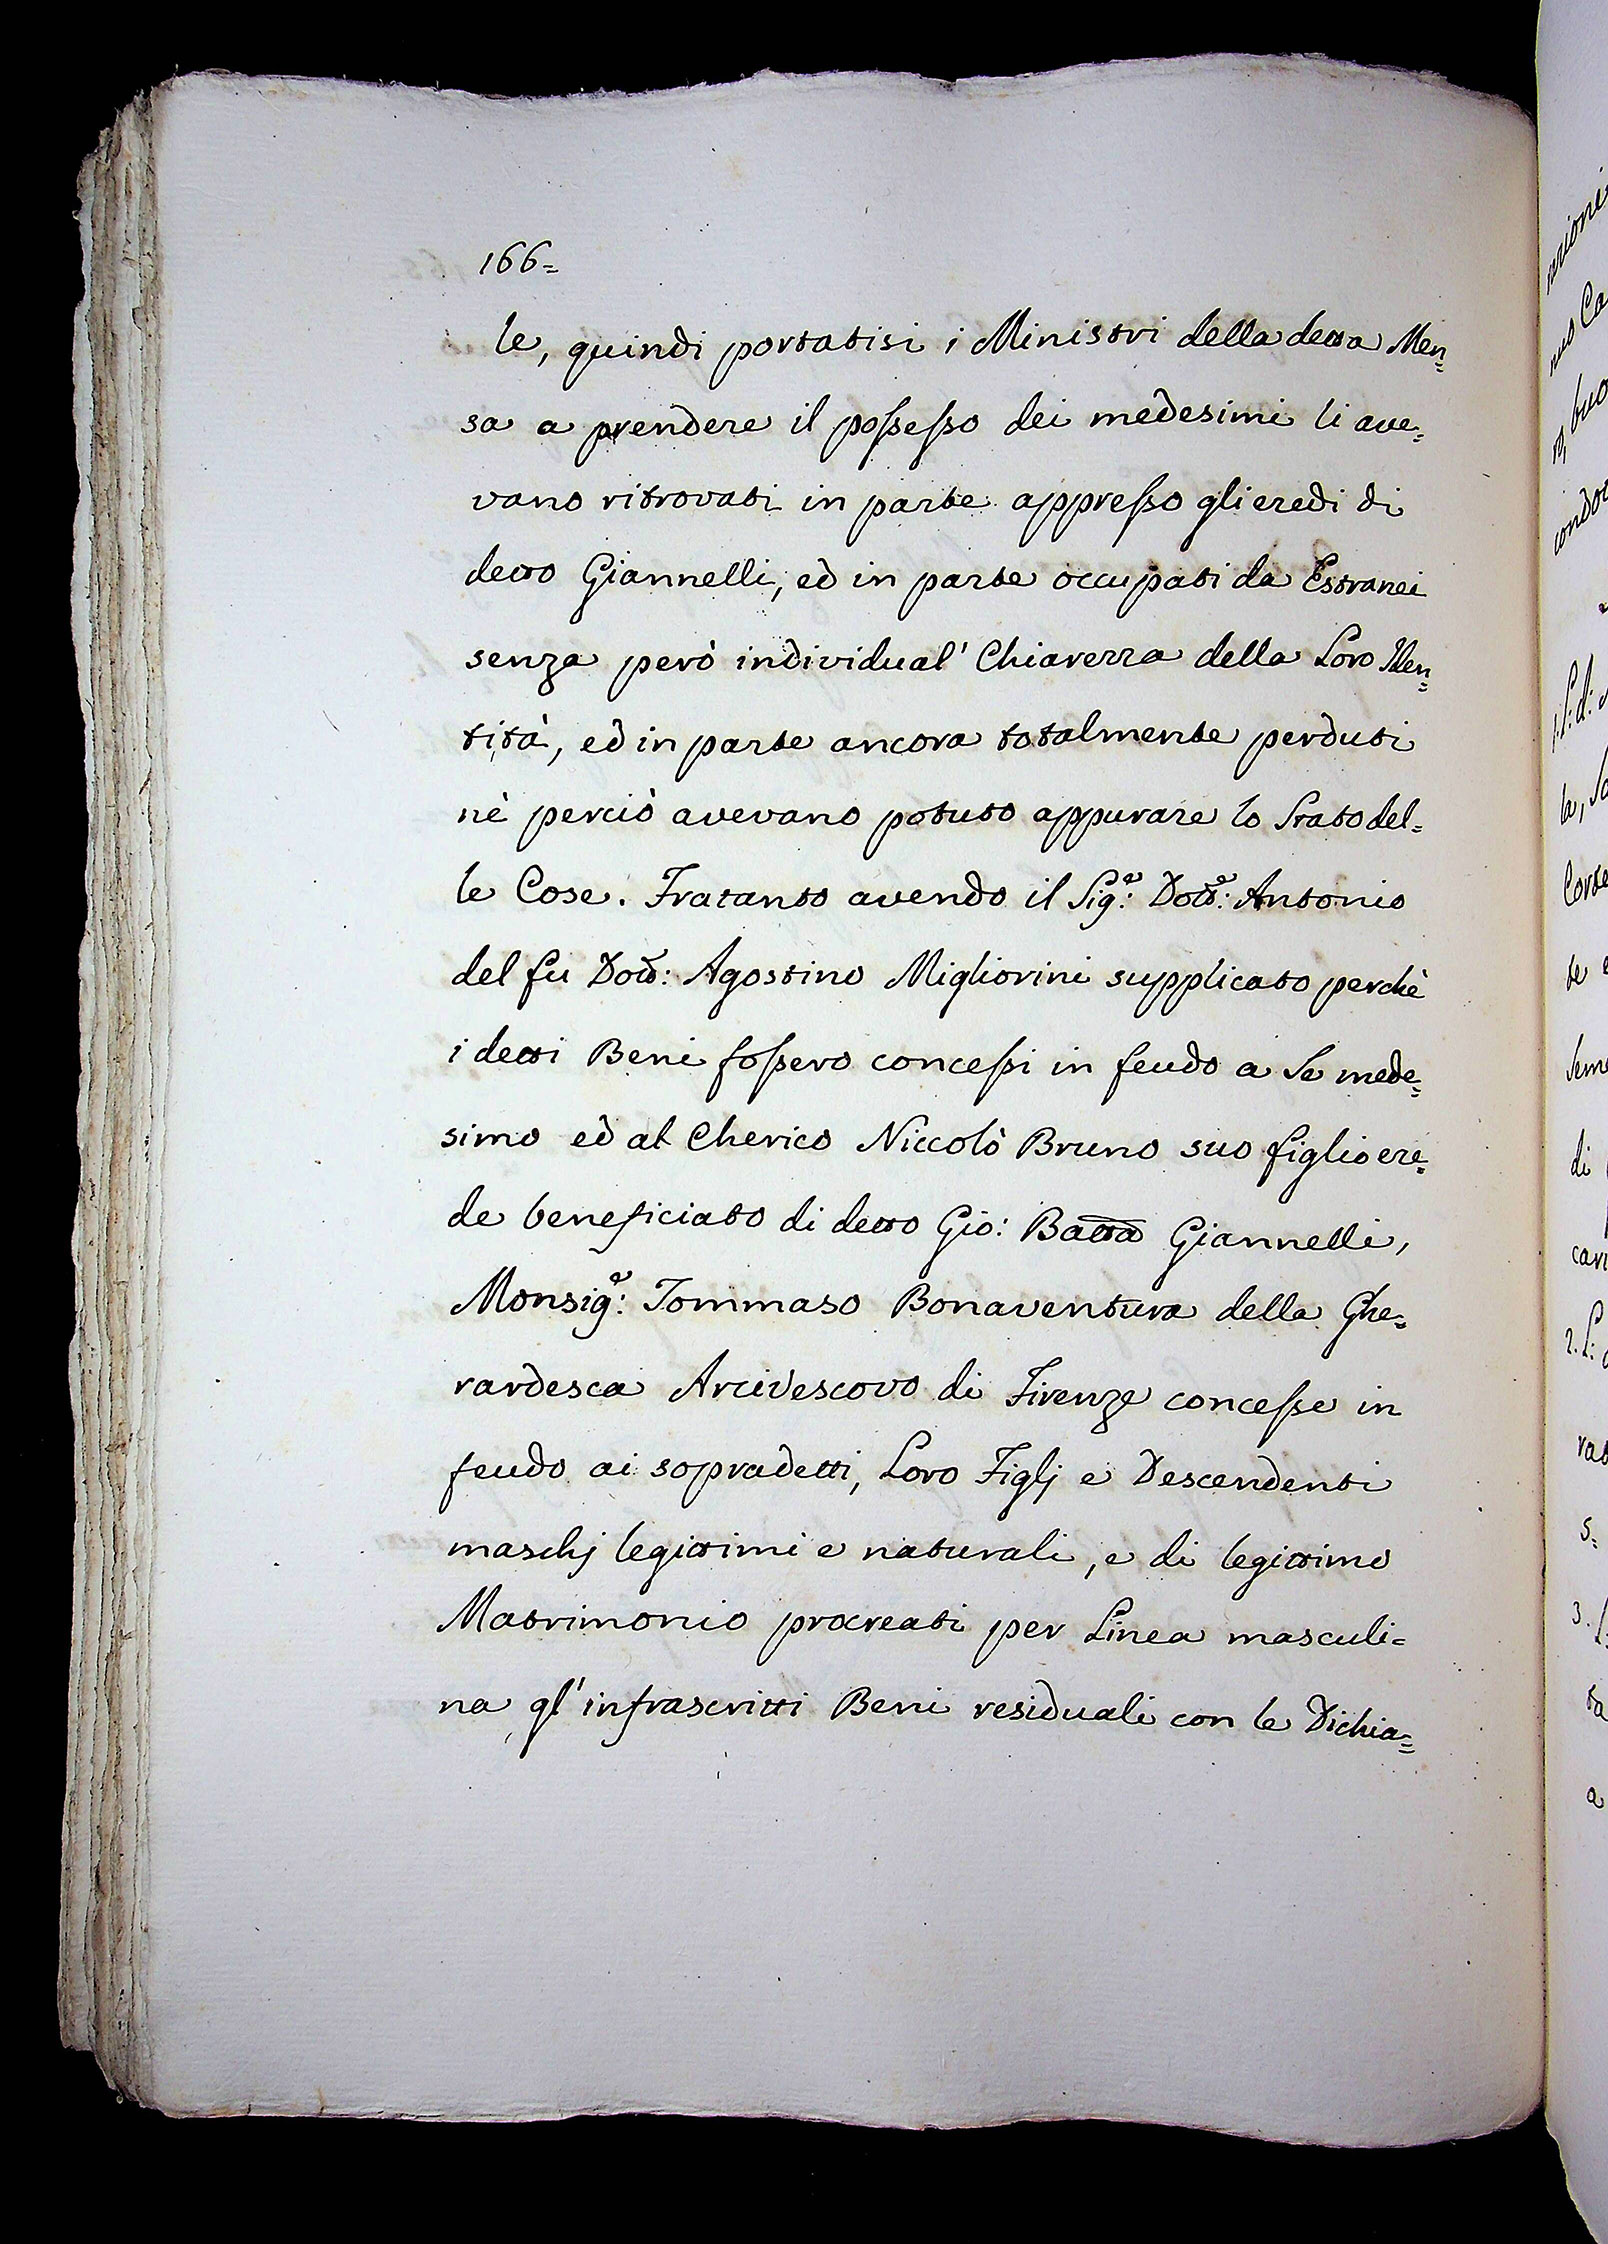 166=
le, quindi portatisi i Ministri della detta Men=
sa a prendere il possesso dei medesimi li ave=
vano ritrovati in parte appresso gli eredi di
detto Giannelli, ed in parte occupati da Estranei
senza però individual' Chiarezza della Loro Iden=
tità, ed in parte ancora totalmente perduti
nè perciò avevano potuto appurare lo Stato del=
le Cose. Fratanto avendo il Sig.e: Dott.e: Antonio
del fu Dott: Agostino Migliorini supplicato perchè
i detti Beni fossero concessi in feudo a Se mede=
simo ed al Cherico Niccolò Bruno suo figlio ere=
de beneficiato di detto Gio: Batta Giannelli,
Monsig.e: Tommaso Bonaventura della Ghe=
rardesca Arcivescovo di Firenze concesse in
feudo ai sopradetti, Loro Figlj e Descendenti
maschj legittimi e naturali, e di legittimo
Matrimonio procreati per Linea masculi=
na gl' infrascritti Beni residuali con le Dichia=